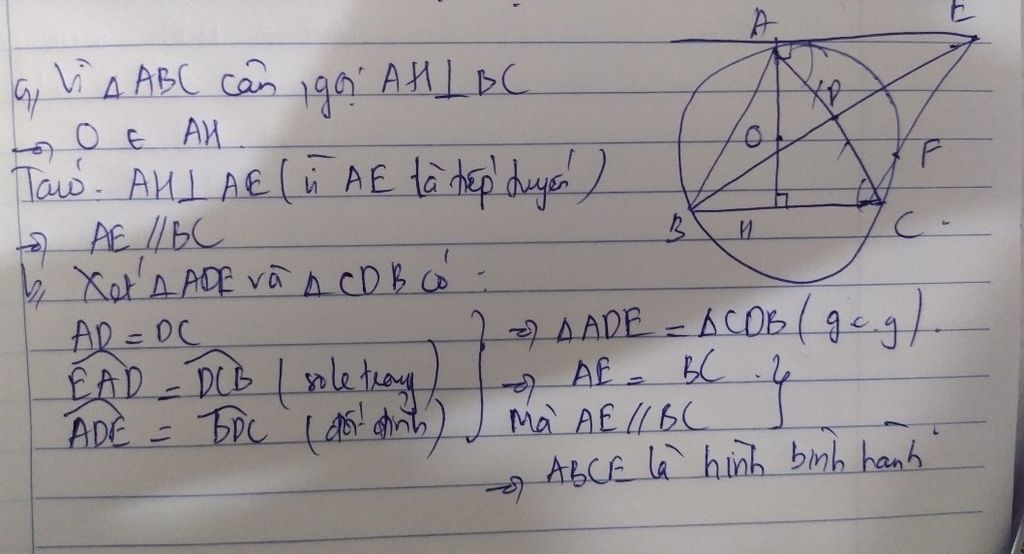 a, Vì △ ABC cân, gọi AH⊥BC
→ O ∈ AH.
Ta có. AH⊥AE (vì AE là tiếp tuyến)
→ AE // BC
b, Xét △ ADE và △ CDB có:
AD = DC
EAD = DCB (so le trong)
ADE = BDC (đối đỉnh)
⇒ △ADE = △CDB (g.c.g).
⇒ AE = BC.
Mà AE // BC
⇒ ABCE là hình bình hành.
A
E
D
O
F
B
H
C